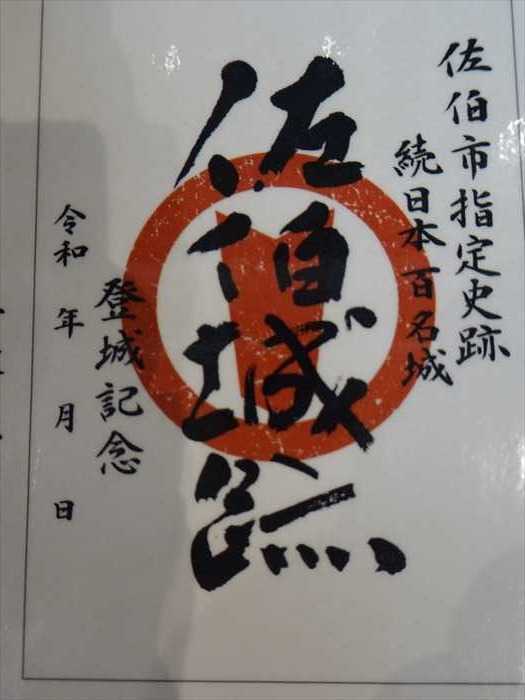 佐伯市指定史跡
続日本百名城
佐伯城跡
登城記念
令和 年 月 日